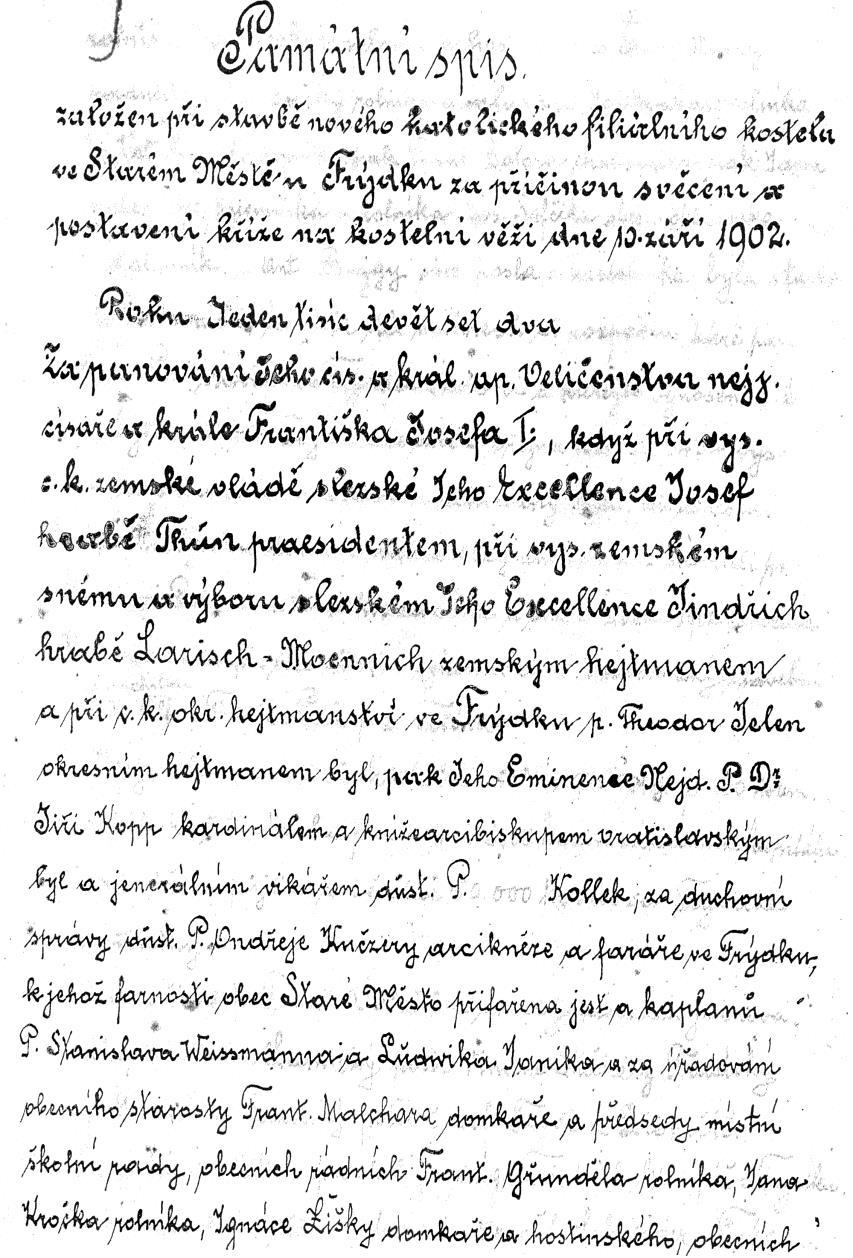 Památní spis.
založen při stavbě nového katolického filiálního kostela
ve Starém Městě u Frýdku za příčinou svěcení a
postavení kříže na kostelní věži dne 10. září 1902.
Roku Jeden tisíc devět set dva
Za panování Jeho cís. a král. ap. Veličenstva nejj.
císaře a krále Františka Josefa I:, když při vys.
c.k. zemské vládě slezské Jeho Excellence Josef
hrabě Thún praesidentem, při vys. zemském
snému a výboru slezském Jeho Excellence Jindřich
hrabě Larisch-Moennich zemským hejtmanem
a při c. k. okr. hejtmanství ve Frýdku p. Theodor Jelen
okresním hejtmanem byl, pak Jeho Eminence Nejd. P. Dr.
Jiří Kopp kardinálem a knížearcibiskupem vratislavským
byl a jenerálním vikářem důst. P. Kollek, za duchovní
správy důst. P. Ondřeje Kučzery arcikněze a faráře ve Frýdku,
k jehož farnosti obec Staré Město přifařena jest a kaplanů
P. Stanislava Weissmanna a Ludwika Janika a za úřadování
obecního starosty Frant. Malchara domkaře a předsedy místní
školní rady, obecních rádních Frant. Grunděla rolníka, Jana
Kročka rolníka, Ignáce Žišky domkaře a hostinského, obecních